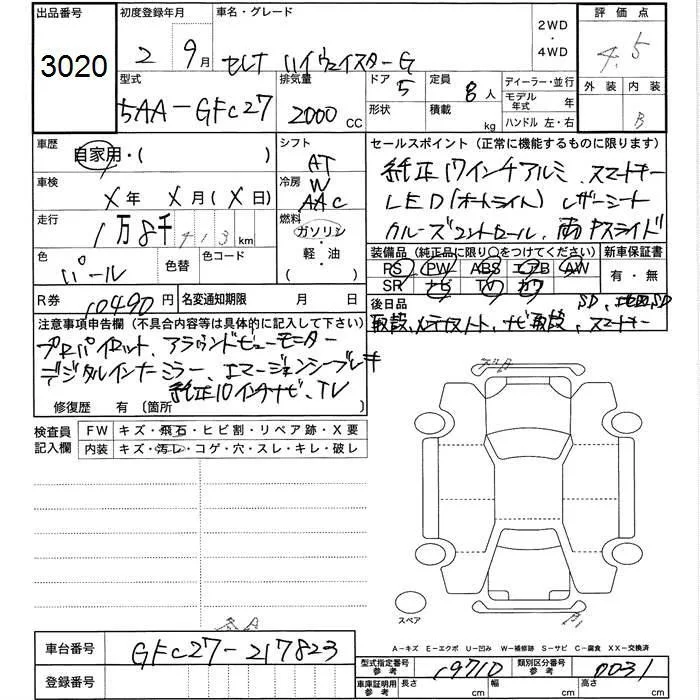 出品番号 初度登録年月 車名・グレード 2WD・4WD 評価点
3020 2年 9月 セレナ ハイウェイスターG 4.5
型式 排気量 ドア 5 定員 8人 ディーラー・並行 外装 内装
5AA-GFC27 2000CC 形状 積載 kg モデル年式 年 B
ハンドル 左・右
車歴 自家用・( ) シフト AT セールスポイント(正常に機能するものに限ります)
車検 X年 X月(X日) 冷房 W AAC 純正17インチアルミ、スマートキー
LED(オートライト) レザーシート
走行 1万8千413km 燃料 ガソリン・軽・油 クルーズコントロール、両Pスライド
色 パール 色替 色コード 装備品(純正品に限り○をつけてください) 新車保証書
PS PW ABS エアB AW 有・無
SR ナビ TV カワ
R券 10490円 名変通知期限 月 日 後日品 SD、
注意事項申告欄(不具合内容等は具体的に記入して下さい) 取説、メンテノート、ナビ取説、スマートキー
プロパイロット、アラウンドビューモニター
デジタルインナーミラー、エマージェンシーブレーキ
純正10インチナビ、TV
修復歴 有 〔箇所 〕
検査員記入欄 FW キズ・飛石・ヒビ割・リペア跡・X要
内装 キズ・汚レ・コゲ・穴・スレ・キレ・破レ
スペア
A-キズ E-エクボ U-凹み W-補修跡 S-サビ C-腐食 XX-交換済
車台番号 GFC27-217823
型式指定番号 参考 19710 類別区分番号 参考 0031
登録番号 車庫証明用 参考 長さ cm 幅 cm 高さ cm